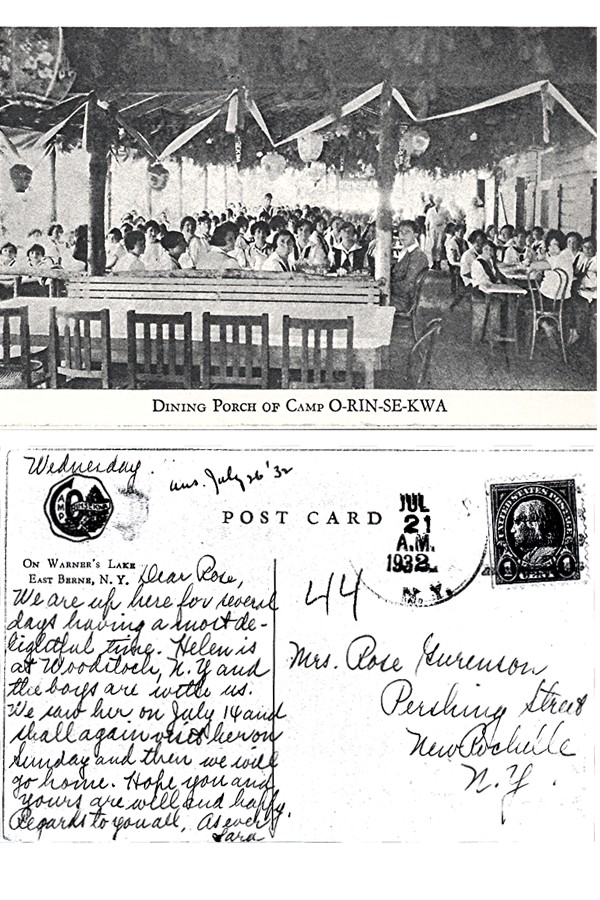 DINING PORCH OF CAMP O-RIN-SE-KWA
Wednesday.
ans. July 26 '32
CAMP
POST CARD
JUL
21
A.M.
1932
N.Y.
UNITED STATES POSTAGE
1 CENT 1
ON WARNER'S LAKE
EAST BERNE, N. Y.
Dear Rose,
We are up here for several
days having a most de-
lightful time. Helen is
at Woodstock, N.Y and
the boys are with us.
We saw her on July 14 and
shall again visit her on
Sunday and then we will
go home. Hope you and
yours are well and happy.
Regards to you all, As ever
Sara
44
Mrs. Rose
Pershing Street
New Rochelle
N.Y.